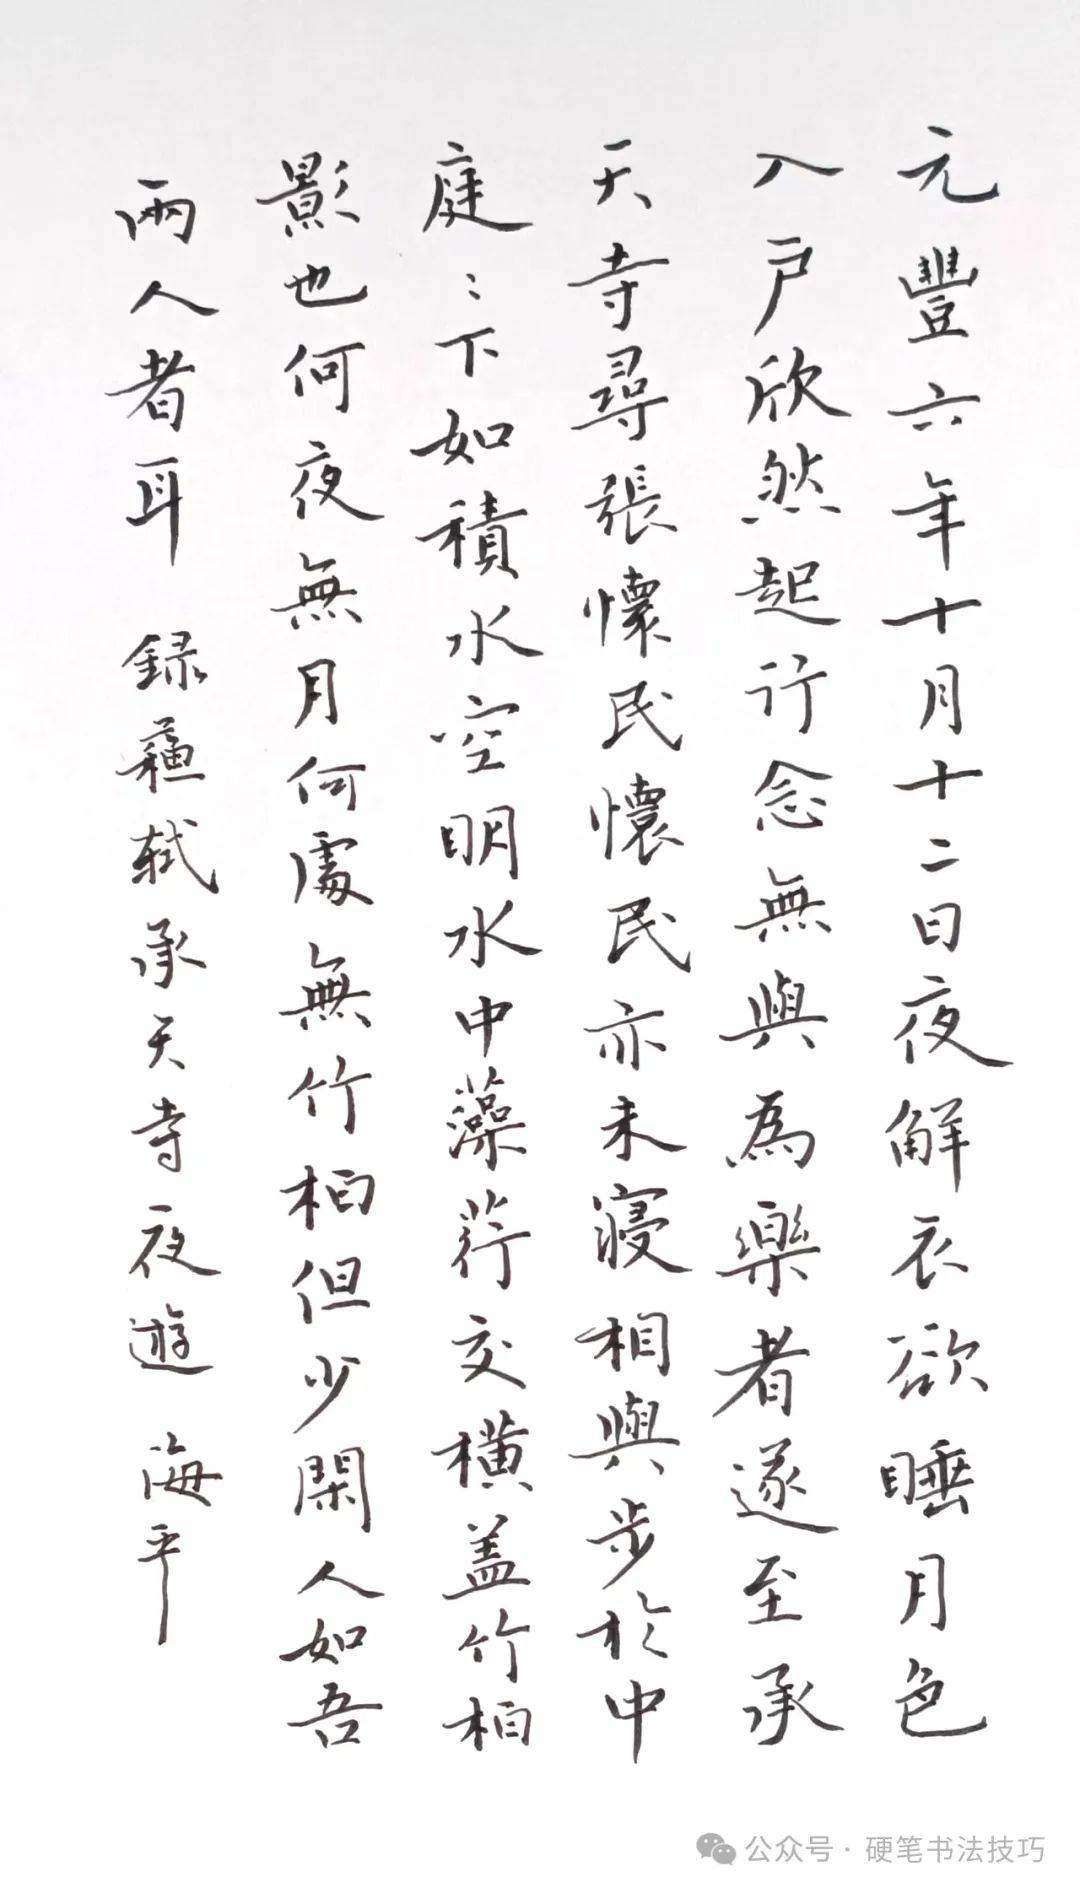 元豐六年十月十二日夜解衣欲睡月色
入戶欣然起行念無與為樂者遂至承
天寺尋張懷民懷民亦未寢相與步於中
庭〻下如積水空明水中藻荇交橫蓋竹柏
影也何夜無月何處無竹柏但少閑人如吾
兩人者耳 録蘓軾承天寺夜遊 海平
公众号·硬笔书法技巧